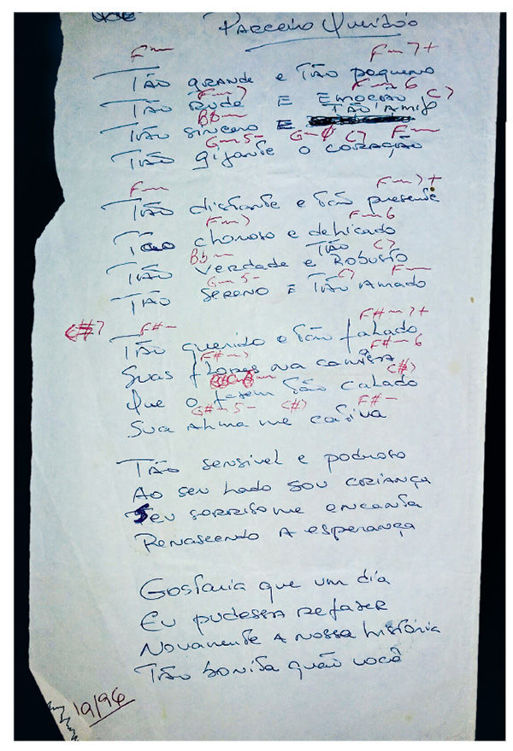 Parceiro Querido
Fm Fm7+
Tão grande e Tão pequeno
Fm7 Fm6
Tão Rude E Emoção C7
Bbm Tão Amigo
Tão sincero E
Gm5- C7 Fm
Tão gigante o coração
Fm Fm7+
Tão distante e tão presente
Fm7 Fm6
Tão choroso e delicado
Bbm Tão C7
Tão verdade e Robusto
Gm5- C7 Fm
Tão sereno E Tão Amado
C#7 F#- F#m7+
Tão querido e tão falado
F#m7 F#-6
Suas flores na camisa
C#7
Que o fazem tão calado
G#-5- C#7 F#-
Sua Alma me cativa
Tão sensível e podroso
Ao seu lado sou criança
Seu sorriso me encanta
Renascendo A esperança
Gostaria que um dia
Eu pudesse refazer
Novamente A nossa história
Tão bonita quão você
19/96